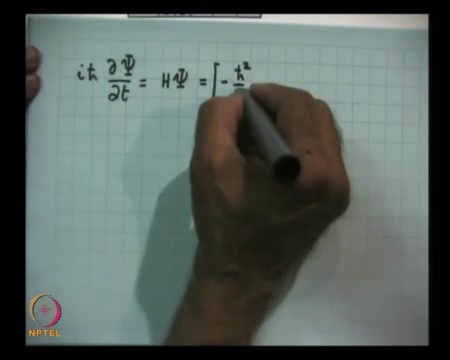 iħ ∂Ψ/∂t = HΨ = [- ħ²
NPTEL